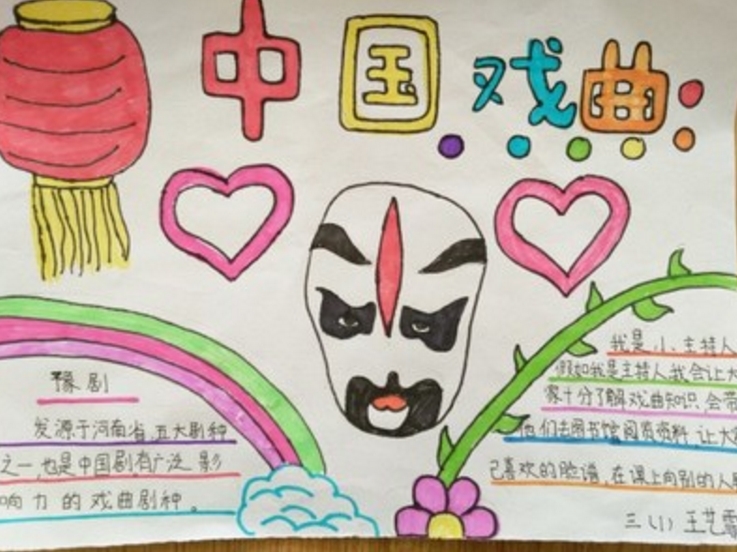 中国戏曲
豫剧
发源于河南省,五大剧种
之一,也是中国剧有广泛影
响力的戏曲剧种。
我是小主持人
假如我是主持人我会让大
家十分了解戏曲知识,会带
他们去图书馆阅览资料,让大
己喜欢的脸谱,在课上向别的人
三(1)王艺霏